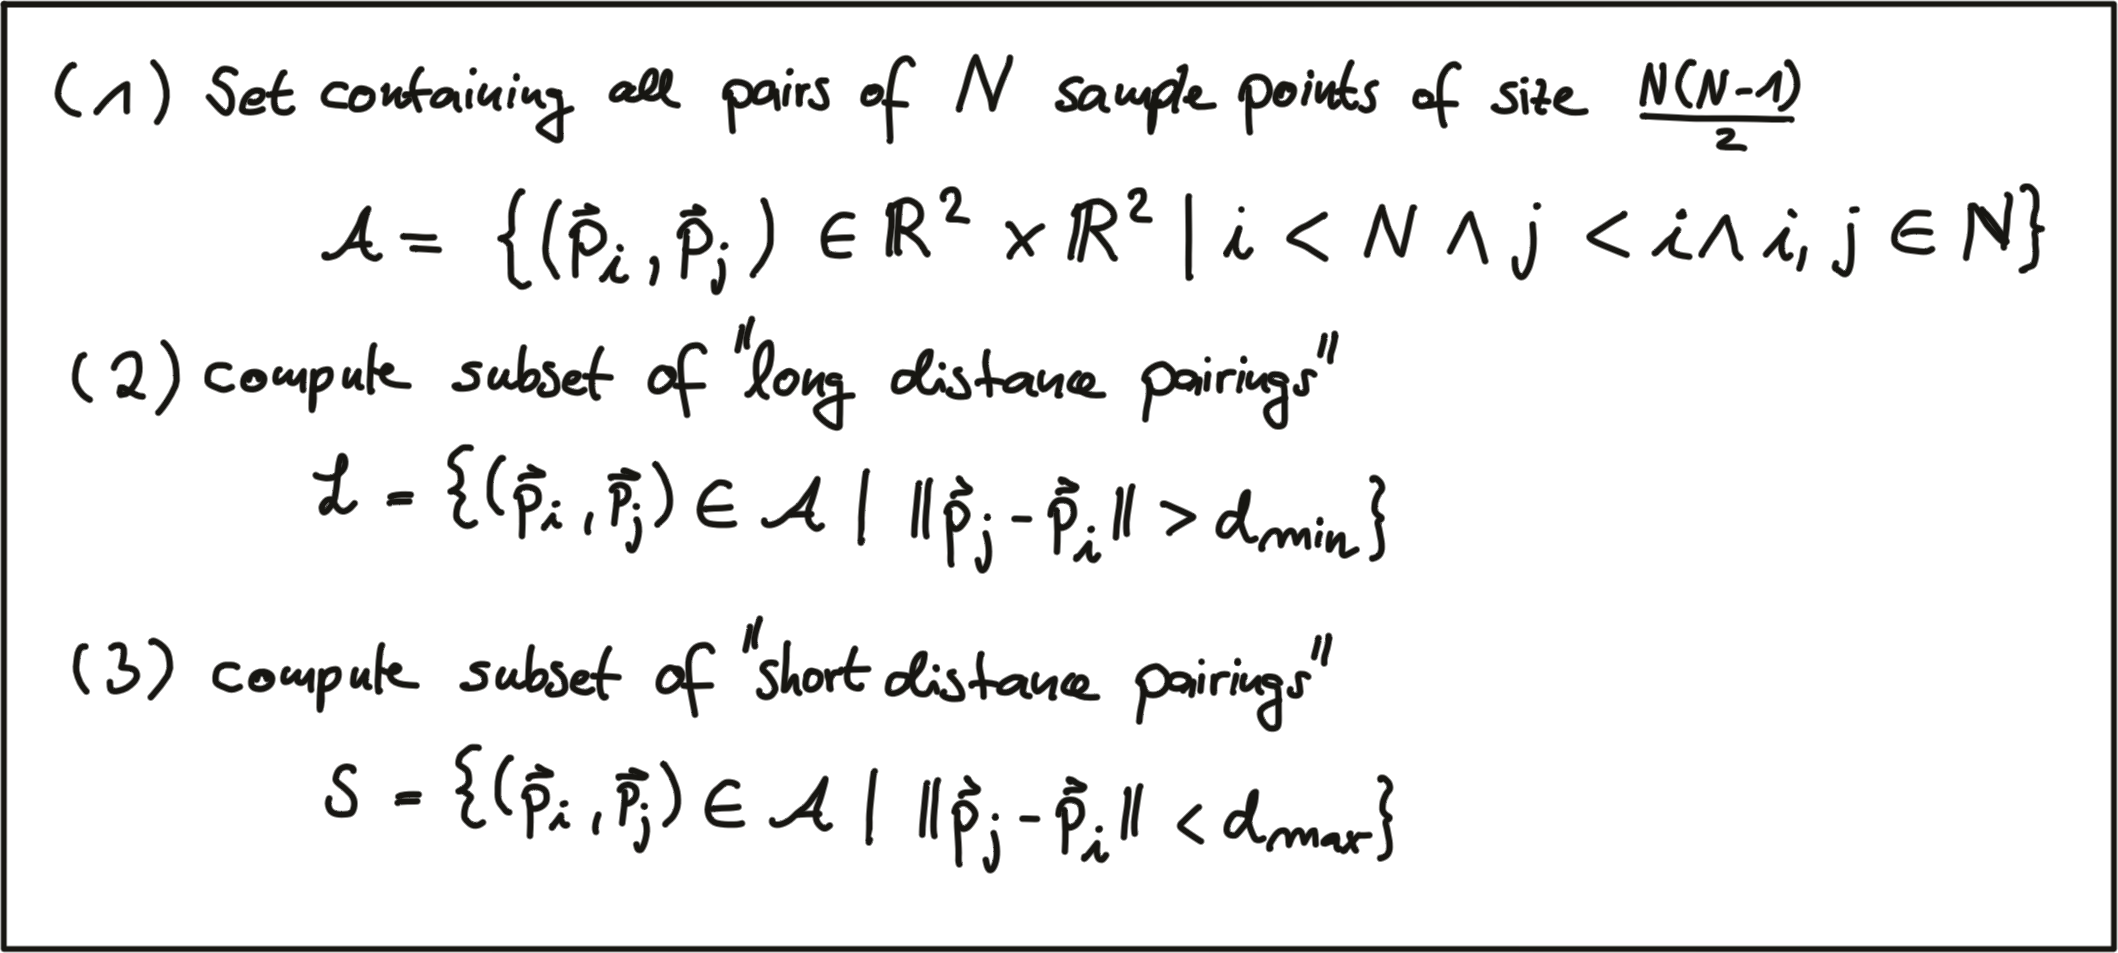 (1) Set containing all pairs of N sample points of size N(N-1)/2
𝒜 = {(p⃗ᵢ, p⃗ⱼ) ∈ ℝ² × ℝ² | i < N ∧ j < i ∧ i, j ∈ ℕ}
(2) compute subset of "long distance pairings"
ℒ = {(p⃗ᵢ, p⃗ⱼ) ∈ 𝒜 | ‖p⃗ⱼ - p⃗ᵢ‖ > d_min}
(3) compute subset of "short distance pairings"
S = {(p⃗ᵢ, p⃗ⱼ) ∈ 𝒜 | ‖p⃗ⱼ - p⃗ᵢ‖ < d_max}